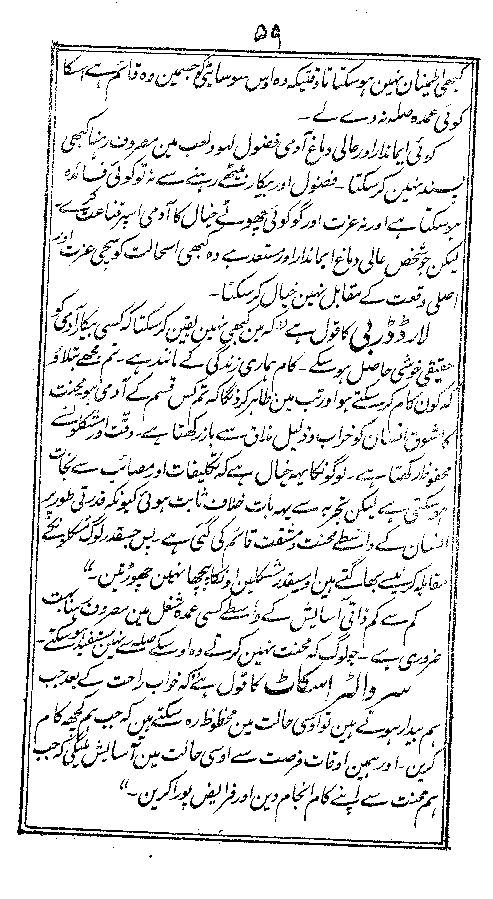 ۵۹
کبھی اطمینان نہین ہوسکتا تاوقتیکہ وہ اوس سوسائیٹی کو جسمین وہ قائم ہے اسکا
کوئی عمدہ صلہ نہ دے لے۔
کوئی ایماندار اور عالی دماغ آدمی فضول لہو و لعب مین مصروف رہنا کبھی
پسند نہین کرسکتا۔ فضول اور بیکار بیٹھے رہنے سے نہ تو کوئی فائدہ
ہوسکتا ہے اور نہ عزت اور گو کوئی چھوٹے خیال کا آدمی اسپر قناعت کرے۔
لیکن جو شخص عالی دماغ ایماندار اور مستعد ہے وہ کبھی اسحالت کو سچی عزت اور
اصلی وقعت کے مقابل نہین خیال کرسکتا۔
لارڈ ڈربی کا قول ہے "کہ مین کبھی نہین یقین کرسکتا کہ کسی بیکار آدمی کو
حقیقی خوشی حاصل ہوسکے۔ کام ہماری زندگی کے مانند ہے۔ تم مجھے بتلاؤ
کہ کون کام کرسکتے ہو اور تب مین ظاہر کردونگا کہ تم کس قسم کے آدمی ہو محنت
کا شوق انسان کو خراب و ذلیل مذاق سے باز رکھتا ہے۔ دقت اور مشکلونسے
محفوظ رکھتا ہے۔ لوگونکا یہہ خیال ہے کہ تکلیفات اور مصائب سے نجات
ہوسکتی ہے لیکن تجربہ سے یہہ بات خلاف ثابت ہوئی کیونکہ قدرتی طور پر
انسان کے واسطے محنت و مشقت قائم کی گئی ہے۔ پس جسقدر لوگ مشکلاتکے
مقابلہ کرنیسے بھاگتے ہین اوسیقدر مشکلین اونکا پیچھا نہین چھوڑتین۔"
کم سے کم ذاتی آسایش کے واسطے کسی عمدہ شغل مین مصروف رہنا بہت
ضروری ہے۔ جو لوگ کہ محنت نہین کرتے وہ اوسکے صلہ سے نہین مستفید ہوسکتے۔
سر والٹر اسکاٹ کا قول ہے "کہ خواب راحت کے بعد جب
ہم بیدار ہوتے ہین تو اوسی حالت مین محظوظ رہ سکتے ہین کہ جب ہم کچھہ کام
کرین۔ اور ہمین اوقات فرصت سے اوسی حالت مین آسایش ملیگی کہ جب
ہم محنت سے اپنے کام انجام دین اور فرایض پورا کرین۔"